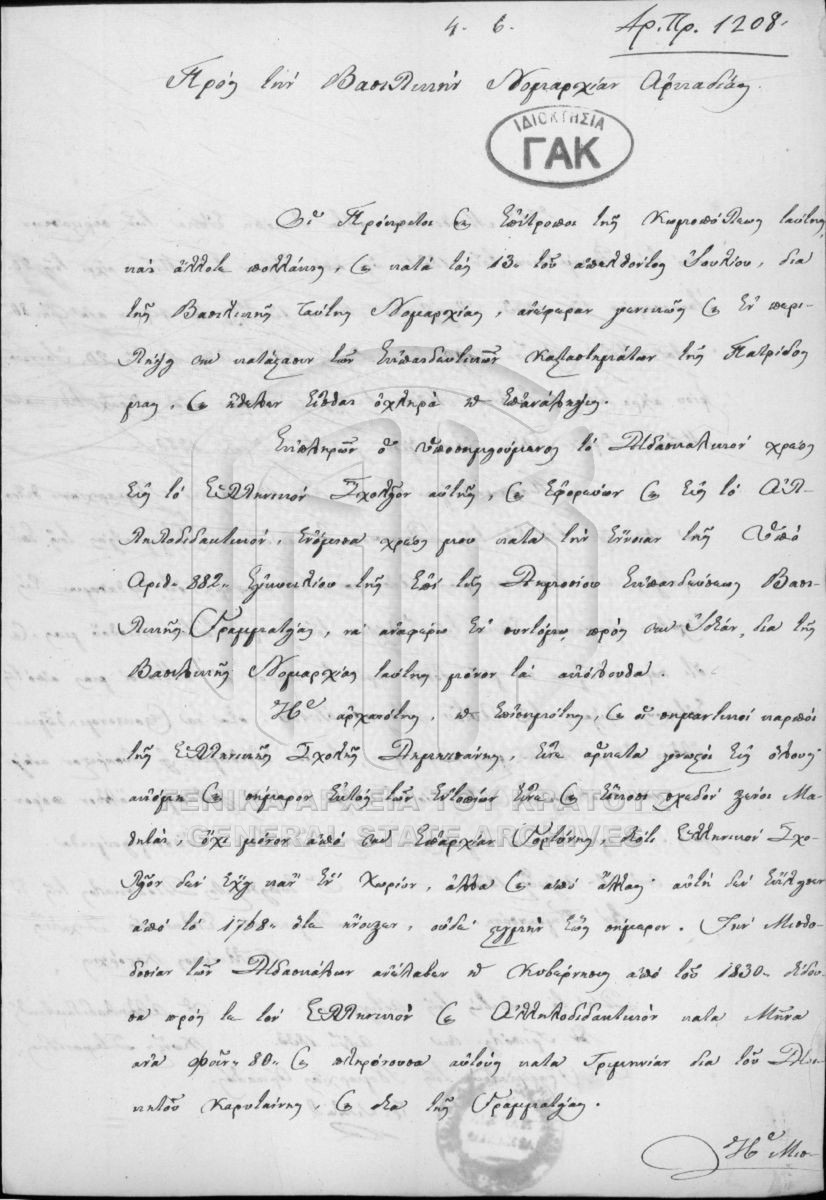 4. 6. Αρ. Πρ. 1208.
Πρὸς τὴν Βασιλικὴν Νομαρχίαν Ἀρκαδίας.
ΙΔΙΟΚΤΗΣΙΑ
ΓΑΚ
Οἱ Πρόκριτοι ϗ Ἐπίτροποι τῆς Κωμοπόλεως ταύτης
καὶ ἄλλοτε πολλάκις, ϗ κατὰ τὰς 13. τοῦ ἀπελθόντος Ἰουλίου, διὰ
τῆς Βασιλικῆς ταύτης Νομαρχίας, ἀνέφεραν γενικῶς ϗ ἐν περι-
λήψει τὴν κατάστασιν τῶν Ἐκπαιδευτικῶν Καταστημάτων τῆς Πατρίδος
μας, ϗ ἤθελεν εἶσθαι ὀχληρὰ ἡ ἐπανάληψις.
Ἐκπληρῶν ὁ ὑποσημειούμενος τὸ Διδασκαλικὸν χρέος
εἰς τὸ Ἑλληνικὸν Σχολεῖον αὐτῆς, ϗ ἐφορεύων ϗ εἰς τὸ Ἀλ-
ληλοδιδακτικόν, ἐνόμισα χρέος μου κατὰ τὴν ἔννοιαν τῆς ὑπὸ
Ἀριθ. 882. Ἐγκυκλίου τῆς ἐπὶ τῆς Δημοσίου Ἐκπαιδεύσεως Βασι-
λικῆς Γραμματείας, νὰ ἀναφέρω ἐν συντόμῳ πρὸς τὴν Ἰδίαν, διὰ τῆς
Βασιλικῆς Νομαρχίας ταύτης μόνον τὰ ἀκόλουθα.
Ἡ ἀρχαιότης, ἡ ἐπισημότης, ϗ οἱ σημαντικοὶ καρποὶ
τῆς Ἑλληνικῆς Σχολῆς Δημητσάνης, εἶναι ἀρκετὰ γνωστοὶ εἰς ὅλους·
ἀκόμη ϗ σήμερον ἐκτὸς τῶν ἐντοπίων εἶναι ϗ εἴκοσι σχεδὸν ξένοι Μα-
θηταί, ὄχι μόνον ἀπὸ τὴν Ἐπαρχίαν Γορτύνης, διότι Ἑλληνικὸν Σχο-
λεῖον δὲν ἔχει κᾀν ἓν Χωρίον, ἀλλὰ ϗ ἀπὸ ἄλλας· αὐτὴ δὲν ἔλειψεν
ἀπὸ τὸ 1768. ὅτε ἤνοιξεν, οὐδὲ στιγμὴν ἕως σήμερον. Τὴν Μισθο-
δοσίαν τῶν Διδασκάλων ἀνέλαβεν ἡ Κυβέρνησις ἀπὸ τοῦ 1830. δίδου-
σα πρός τε τὸν Ἑλληνικὸν ϗ Ἀλληλοδιδακτικὸν κατὰ Μῆνα
ἀνὰ Φοίν. 80. ϗ πληρόνουσα αὐτοὺς κατὰ Τριμηνίαν διὰ τοῦ Διοι-
κητοῦ Καρυταίνης, ϗ διὰ τῆς Γραμματείας.
Ἡ Μισ-
ΓΕΝΙΚΑ ΑΡΧΕΙΑ ΤΟΥ ΚΡΑΤΟΥΣ
GENERAL STATE ARCHIVES